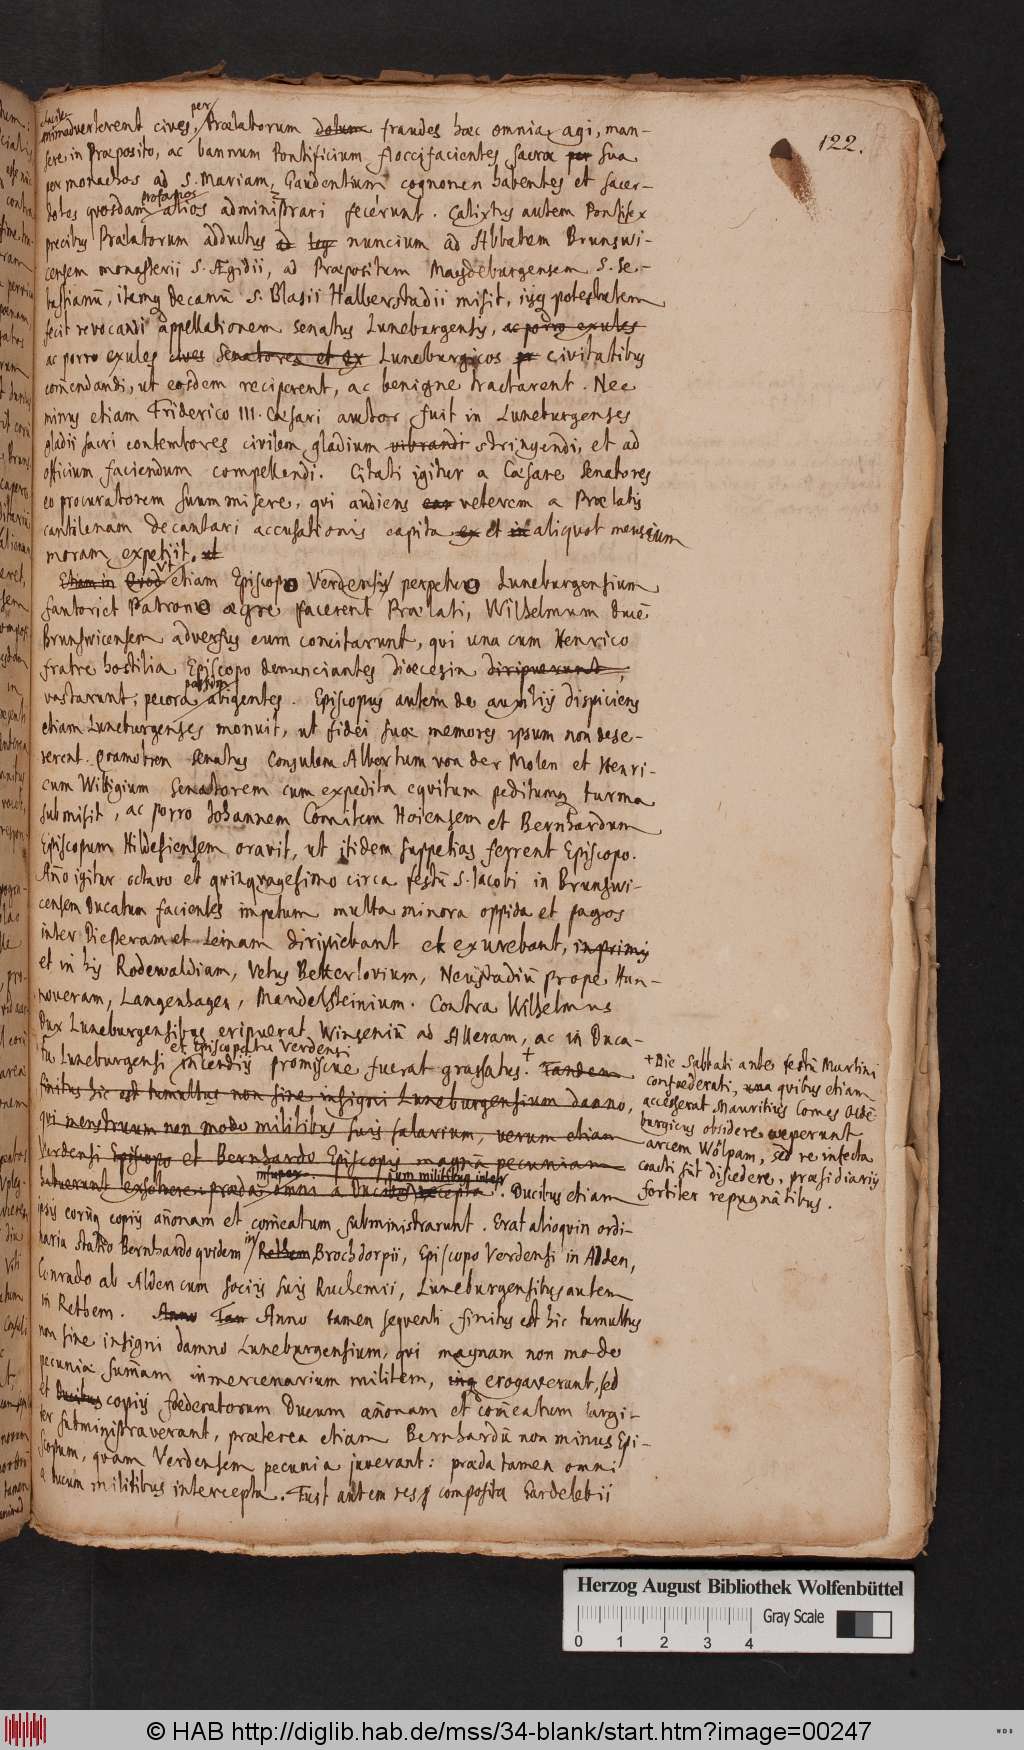 122.
facile
animadverterent cives, per Prælatorum dolum fraudes hæc omnia agi, man-
sere in Præposito, ac bannum Pontificium floccifacientes sacra per sua
per monachos ad S. Mariam, Gaudentium cognomen habentes et sacer-
profanos
dotes quosdam alios administrari fecerunt. Calixtus autem Pontifex
precibus Prælatorum adductus ad leg nuncium ad Abbatem Brunswi-
censem monasterii S. Ægidii, ad Præpositum Magdeburgensem S. Se-
bastianū, itemq Decanū S. Blasii Halberstadii misit, iisq potestatem
fecit revocandi appellationem senatus Luneburgensis, ac porro exules
ac porro exules cives Senatores et ex Luneburgicos civitatibus
com̄endandi, ut eosdem reciperent, ac benigne tractarent. Nec
minus etiam Friderico III. Cæsari auctor fuit in Luneburgenses
gladii sacri contemtores civilem gladium vibrandi stringendi, et ad
officium faciendum compellendi. Citati igitur a Cæsare Senatores
eo procuratorem suum misere, qui audiens eas veterem a Prælatis
cantilenam decantari accusationis capita ex et in aliquot mensium
moram expetiit. ut
Etiam in Quod ut etiam Episcopo Verdensis perpetuo Luneburgensium
fautori et Patrono ægre facerent Prælati, Wilhelmum ducē
Brunswicensem adversus eum concitarunt, qui una cum Henrico
fratre hostilia Episcopo denunciantes diœcesin diripuerunt,
passim
vastarunt, pecora abigentes. Episcopus autem de auxiliis dispiciens
etiam Luneburgenses monuit, ut fidei suæ memores ipsum non dese-
rerent. Quamobrem Senatus Consulem Albertum von der Molen et Henri-
cum Wittigium Senatorem cum expedita equitum peditumq turma
submisit, ac porro Johannem Comitem Hoiensem et Bernhardum
Episcopum Hildesiensem oravit, ut itidem suppetias ferrent Episcopo.
Año igitur octavo et quinquagesimo circa festū S. Jacobi in Brunswi-
censem Ducatum facientes impetum multa minora oppida et pagos
inter Diesteram et Leinam diripiebant et exurebant, inprimis
et in his Rodewaldiam, Vetus Bekkerlovium, Neustadiū prope Han-
noveram, Langenhagen, Mandelsteinium. Contra Wilhelmus
Dux Luneburgensibus eripuerat Winseniū ad Alleram, ac in Duca-
et Episcopatu Verdensi
tu Luneburgensi incendiis promiscue fuerat grassatus. + Tandem
finitus hic est tumultus non sine insigni Luneburgensium damno,
qui menstruum non modo militibus suis salarium, verum etiam
Verdensi Episcopo et Bernhardo Episcopis magnā pecuniam
insuper cum militibus inter
exsolvere: præda omni a Ducibus recepta. Ducibus etiam
ipsis eorūq copiis añonam et com̄eatum subministrarunt. Erat alioquin ordi-
naria statio Bernhardo quidem in Rethem Brochdorpii, Episcopo Verdensi in Alden,
Conrado ab Alden cum sociis suis Ruchemii, Luneburgensibus autem
in Rethem. Anno Tan Anno tamen sequenti finitus est hic tumultus
non sine insigni damno Luneburgensium, qui magnam non modo
pecuniæ sum̄am in mercenarium militem, inq erogaverunt, sed
et Ducibus copiis fœderatorum Ducum añonam et com̄eatum largi-
ter subministraverant, præterea etiam Bernhardū non minus Epi-
scopum, quam Verdensem pecunia juverant: præda tamen omni
a Ducum militibus intercepta. Fuit autem res composita Gardelebii
+ Die Sabbati ante festū Martini
confœderati, una quibus etiam
accesserat Mauritius Comes Oldē-
burgicus obsidere cœperunt
arcem Wölpam, sed re infecta
coacti sūt discedere, præsidiariis
fortiter repugnātibus.
Herzog August Bibliothek Wolfenbüttel
0 1 2 3 4
Gray Scale
© HAB http://diglib.hab.de/mss/34-blank/start.htm?image=00247